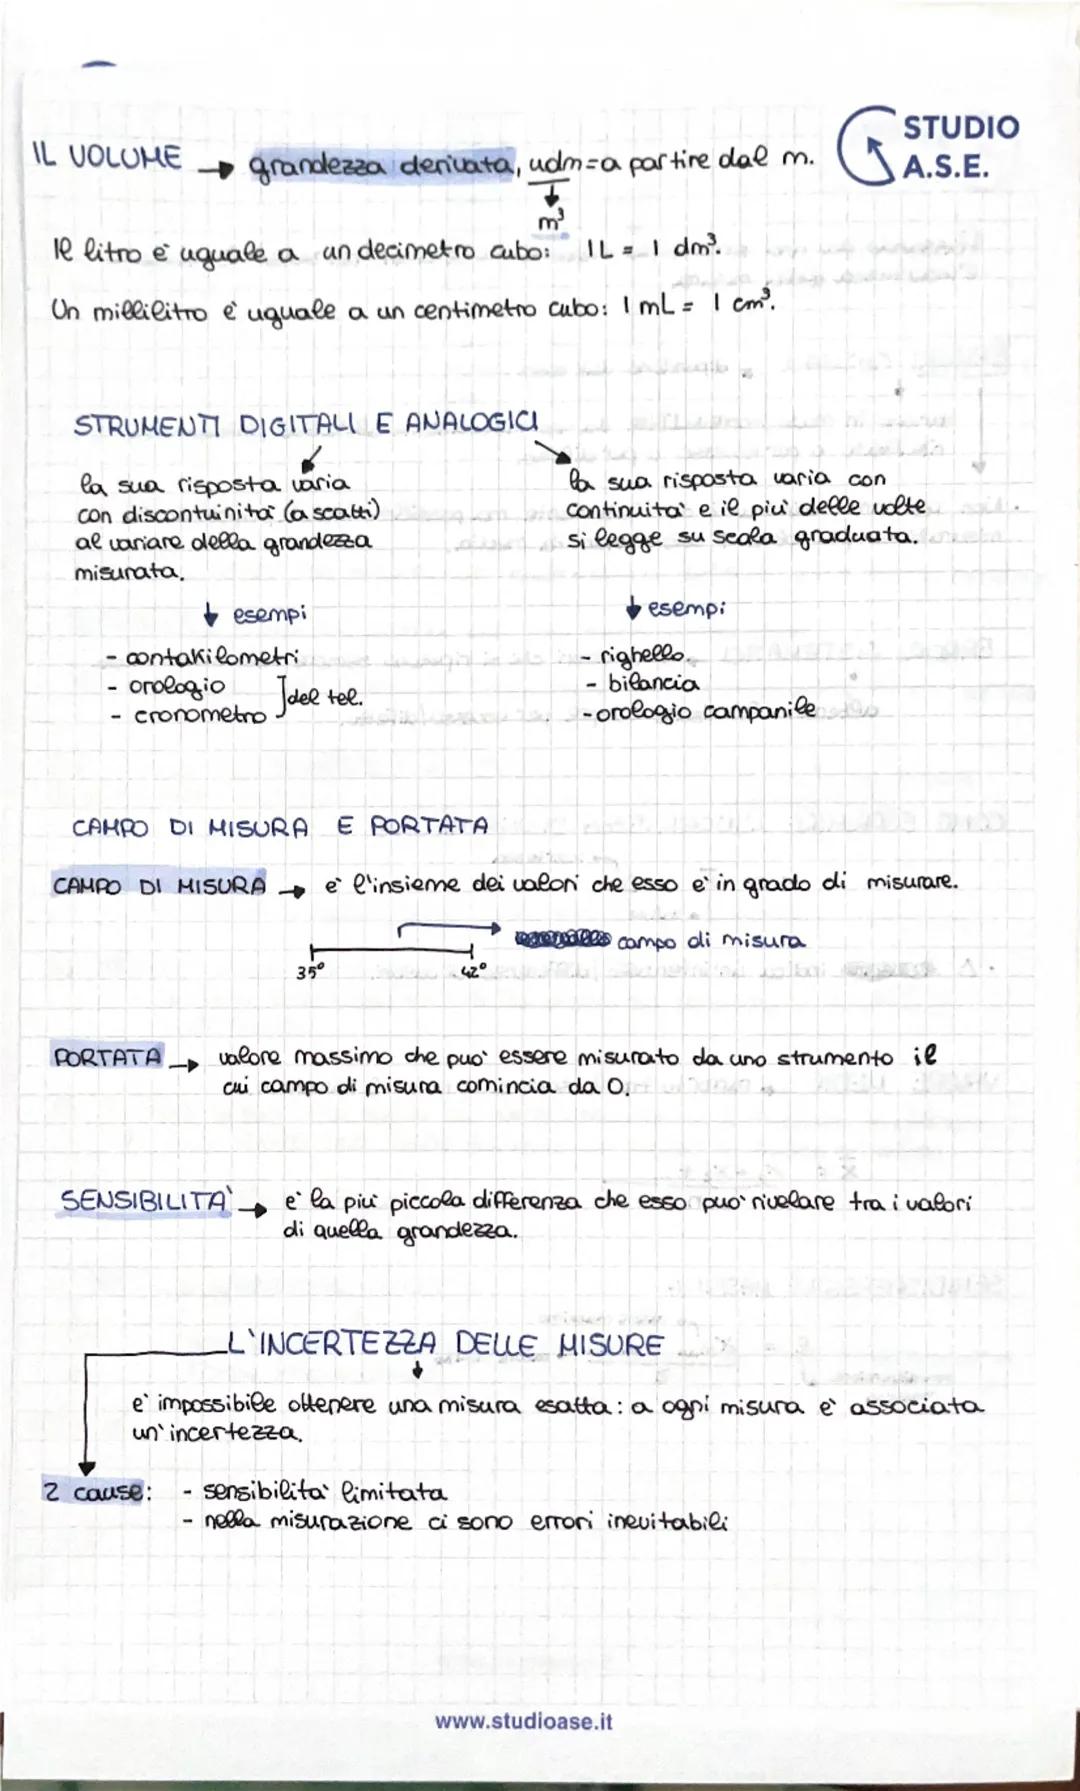 STUDIO
A.S.E.
IL VOLUME → grandezza derivata, udm=a partire dal m.
m³
Il litro è uguale a un decimetro cubo: 1L = 1 dm³.
Un millilitro è uguale a un centimetro cubo: 1 mL = 1 cm³.
STRUMENTI DIGITALI E ANALOGICI
la sua risposta varia
con discontuinità (a scatti)
al variare della grandezza
misurata.
↓ esempi
- contakilometri
- orologio
- cronometro
]del tel.
la sua risposta varia con
continuità e il più delle volte
si legge su scala graduata.
↓ esempi
- righello
- bilancia
- orologio campanile
CAMPO DI MISURA E PORTATA
CAMPO DI MISURA → è l'insieme dei valori che esso è in grado di misurare.
campo di misura
35° 42°
PORTATA → valore massimo che può essere misurato da uno strumento il
cui campo di misura comincia da 0.
SENSIBILITA' → è la più piccola differenza che esso può rivelare tra i valori
di quella grandezza.
L'INCERTEZZA DELLE MISURE
è impossibile ottenere una misura esatta: a ogni misura è associata
un'incertezza.
2 cause: - sensibilità limitata
- nella misurazione ci sono errori inevitabili
www.studioase.it